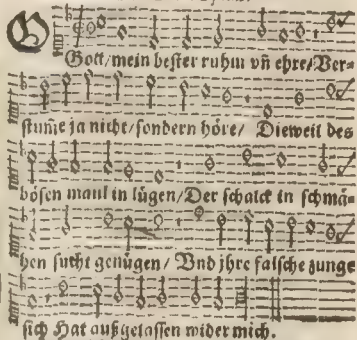 O
Gott/mein bester ruhm vñ ehre/Ver-
stum̃e ja nicht/sondern höre/ Dieweil des
bösen maul in lügen/Der schalck in schmä-
hen sucht genügen/ Vnd jhre falsche zunge
sich Hat außgelassen wider mich.